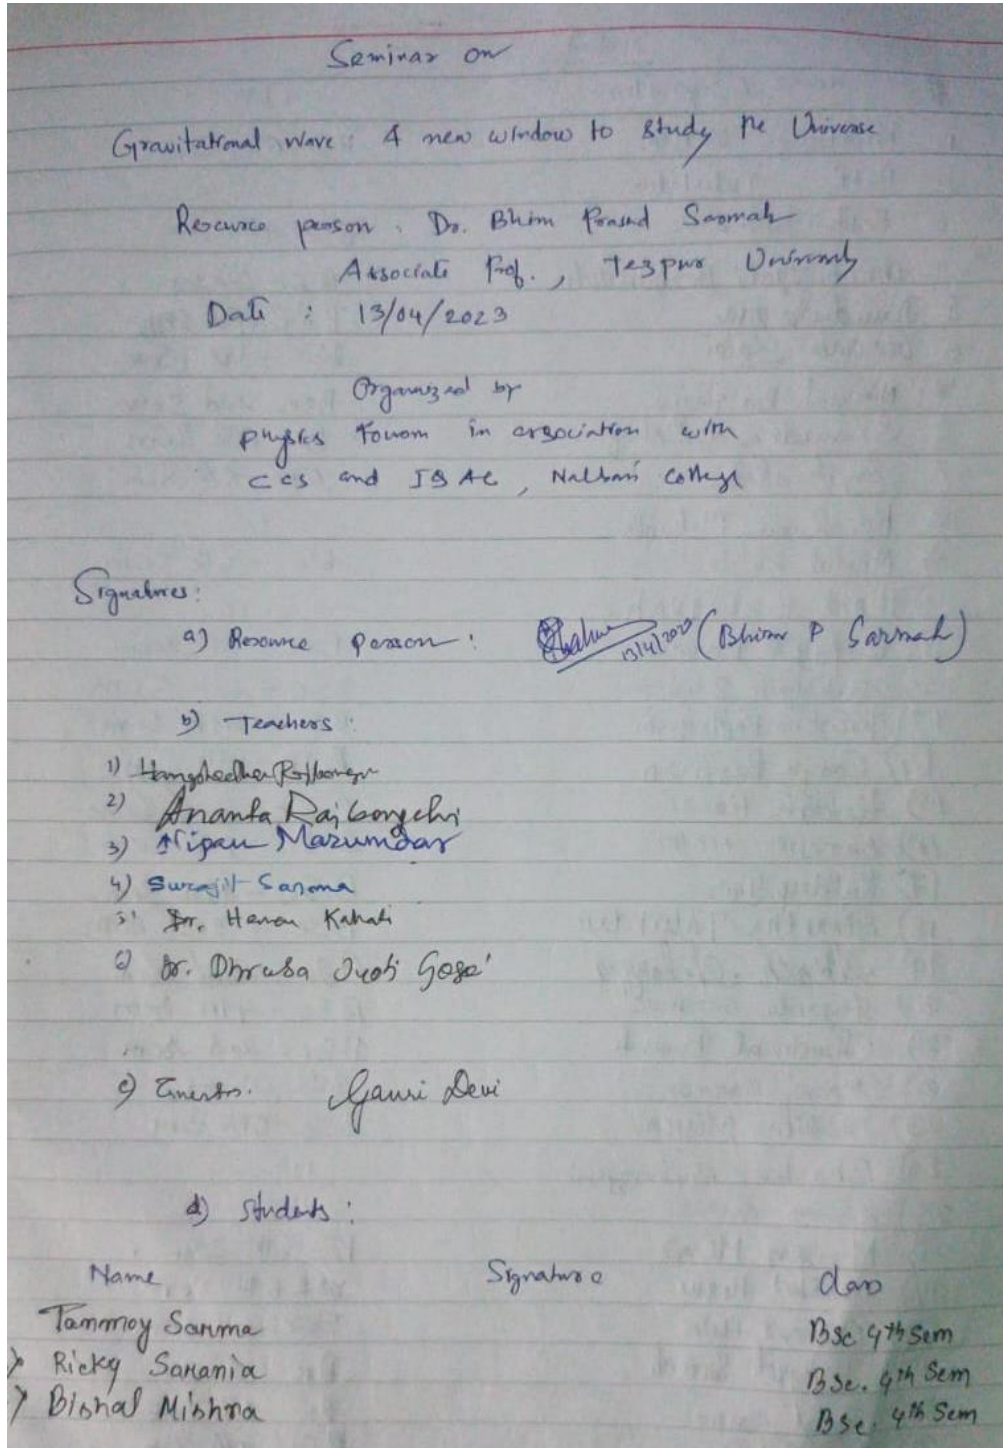 Seminar on
Gravitational Wave: A new window to study the Universe
Resource person: Dr. Bhim Prasad Sarmah
Associate Prof., Tezpur University
Date : 13/04/2023
Organized by
Physics Forum in association with
CCS and IQAC, Nalbari College
Signatures:
a) Resource person : 13/4/2023 (Bhim P Sarmah)
b) Teachers:
1) Rajbongshi
2) Ananta Rajbongshi
3) Nipan Mazumdar
4) Surajit Sarma
5) Dr. Kakati
6) Dr. Dhruba Jyoti Gogoi
c) Gauri Devi
d) Students :
Name Signature Class
Tanmoy Sarma BSc 4th Sem
Ricky Sarania BSc. 4th Sem
Bishal Mishra BSc. 4th Sem